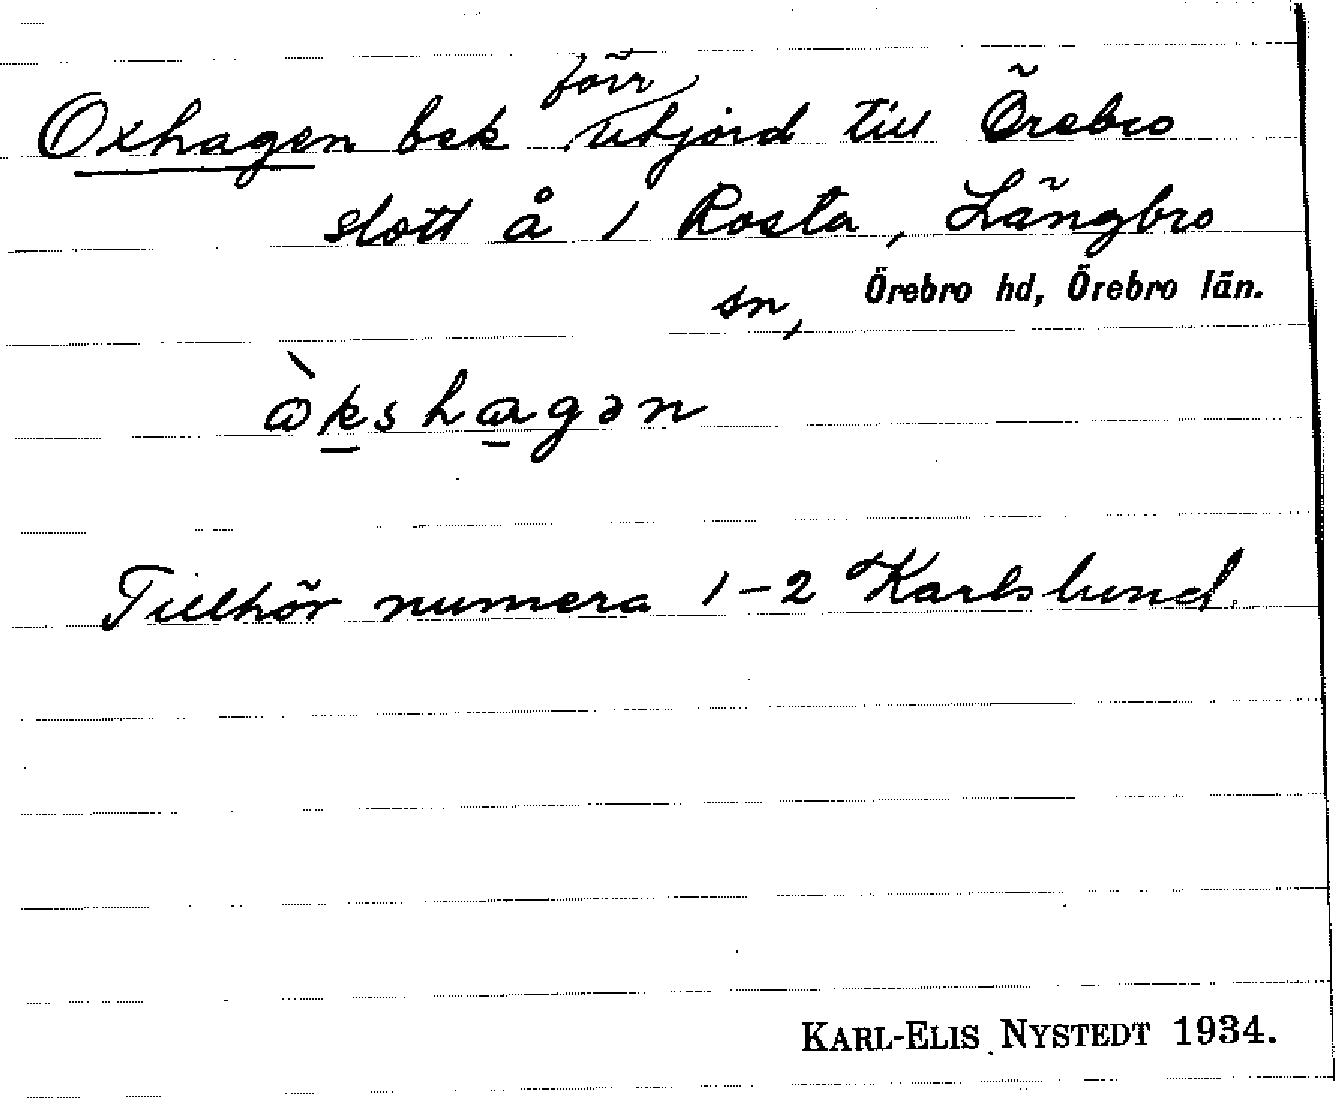 Oxhagen bek förr utjord till Örebro
slott å 1 Rosta, Längbro
sn, Örebro hd, Örebro län.
ὰkshagən
Tillhör numera 1-2 Karlslund.
KARL-ELIS NYSTEDT 1934.